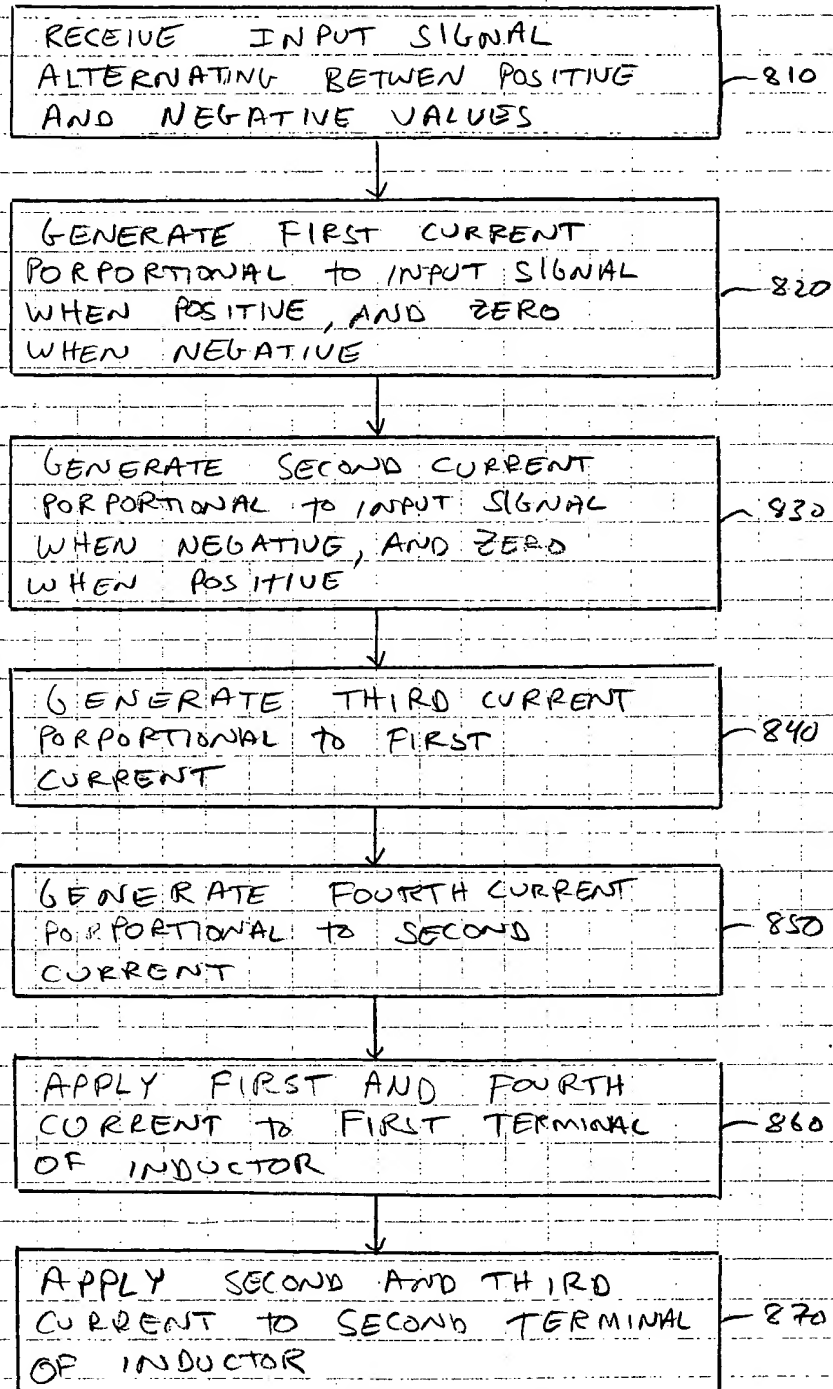 RECEIVE INPUT SIGNAL
ALTERNATING BETWEN POSITIVE
AND NEGATIVE VALUES
810
GENERATE FIRST CURRENT
PORPORTIONAL to INPUT SIGNAL
WHEN POSITIVE, AND ZERO
WHEN NEGATIVE
820
GENERATE SECOND CURRENT
PORPORTIONAL to INPUT SIGNAL
WHEN NEGATIVE, AND ZERO
WHEN POSITIVE
830
GENERATE THIRD CURRENT
PORPORTIONAL to FIRST
CURRENT
840
GENERATE FOURTH CURRENT
PORPORTIONAL to SECOND
CURRENT
850
APPLY FIRST AND FOURTH
CURRENT to FIRST TERMINAL
OF INDUCTOR
860
APPLY SECOND AND THIRD
CURRENT to SECOND TERMINAL
OF INDUCTOR
870